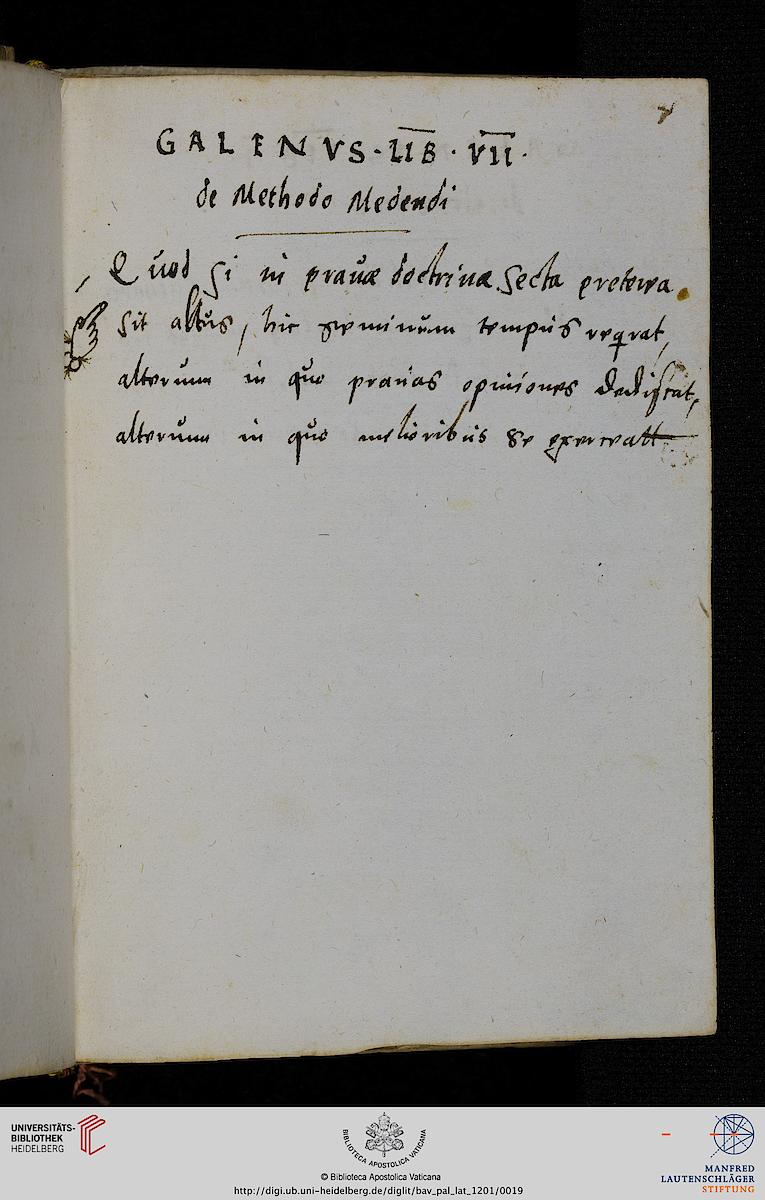 7
GALENVS · LIB · VII ·
de Methodo Medendi
Quod si in prauæ doctrinæ secta preterea
sit altus, hic geminum tempus reqrat,
alterum in quo prauas opiniones dediscat,
alterum in quo melioribus se exerceatt
UNIVERSITÄTS-
BIBLIOTHEK
HEIDELBERG
BIBLIOTECA APOSTOLICA VATICANA
© Biblioteca Apostolica Vaticana
http://digi.ub.uni-heidelberg.de/diglit/bav_pal_lat_1201/0019
MANFRED
LAUTENSCHLÄGER
STIFTUNG